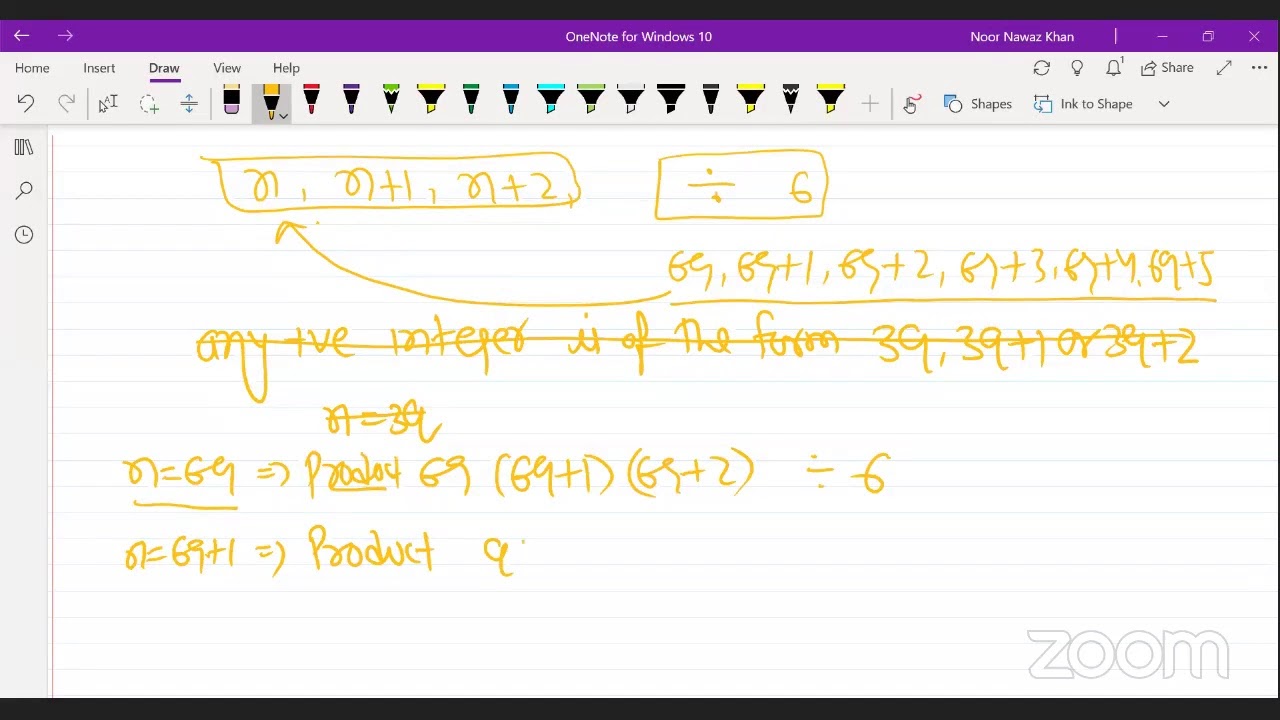 OneNote for Windows 10
Noor Nawaz Khan
Home Insert Draw View Help
Share
Shapes Ink to Shape
n, n+1, n+2, ÷ 6
6q, 6q+1, 6q+2, 6q+3, 6q+4, 6q+5
any +ve integer is of the form 3q, 3q+1 or 3q+2
n=3q
n=6q => Product 6q (6q+1) (6q+2) ÷ 6
n=6q+1 => Product q
zoom